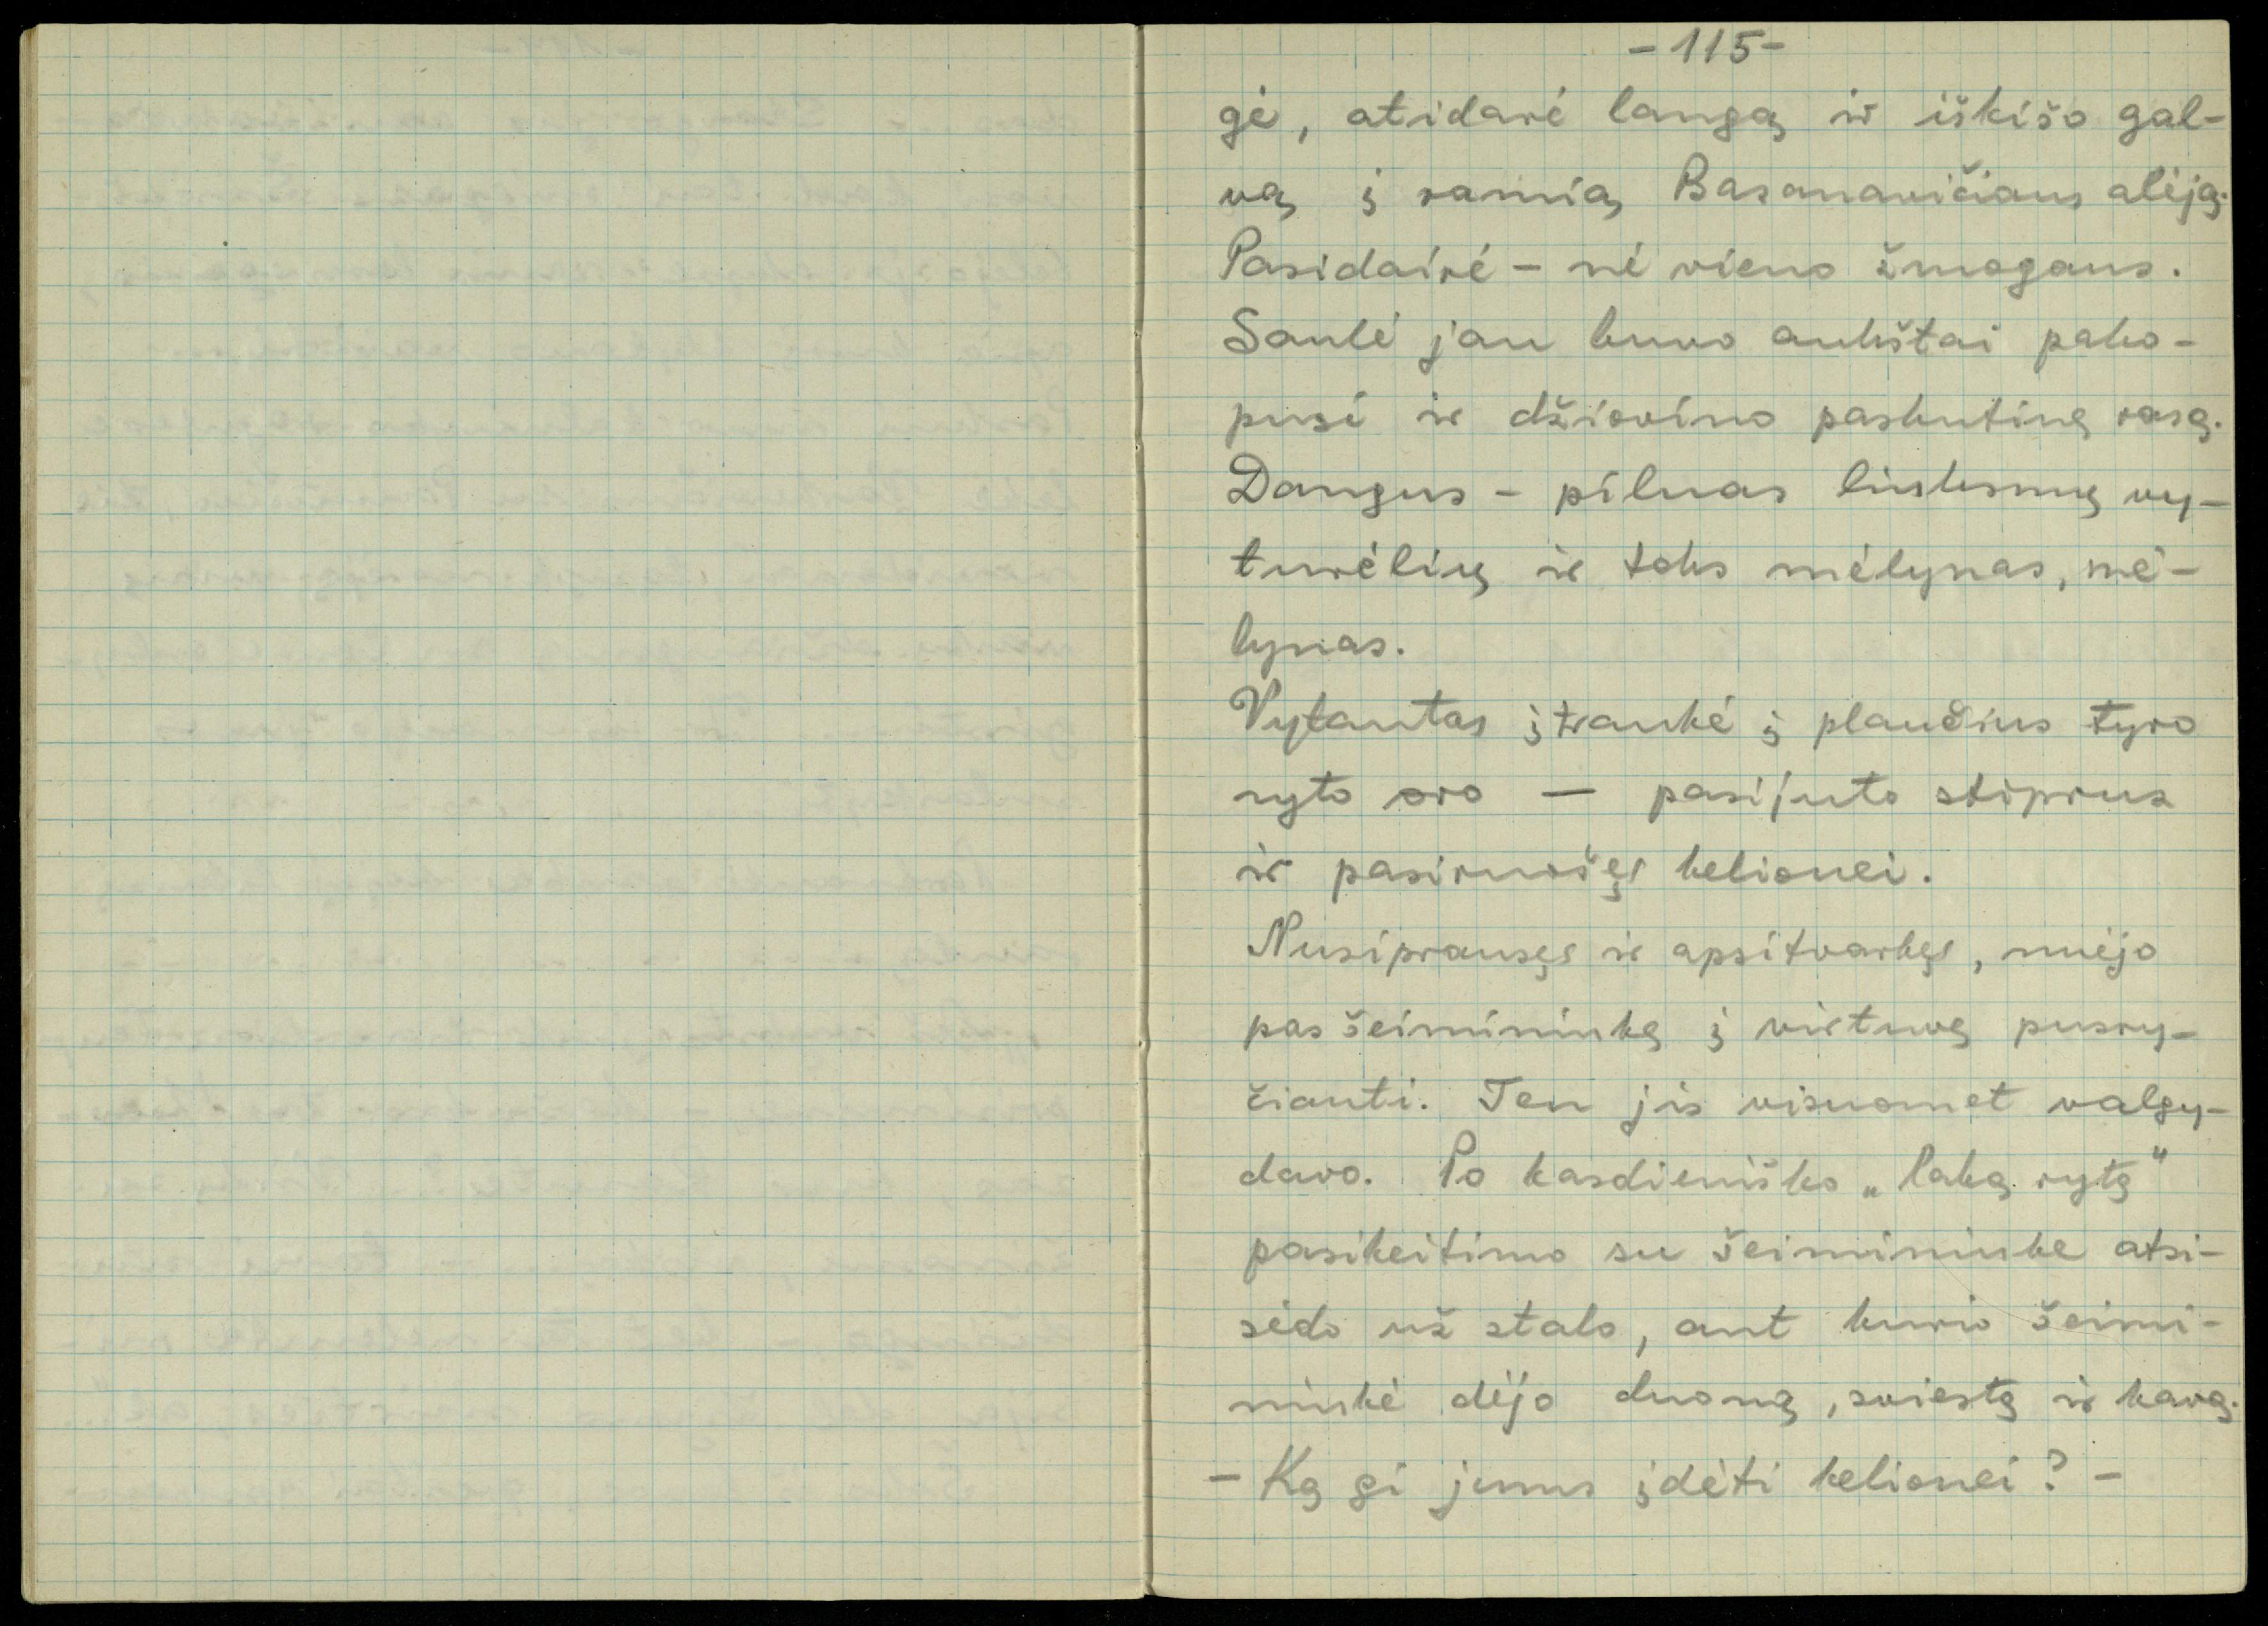 -115-
gė, atidarė langą ir iškišo gal-
vą į ramią Basanavičiaus alėją.
Pasidairė - nė vieno žmogaus.
Saulė jau buvo aukštai pako-
pusi ir džiovino paskutinę rasą.
Dangus - pilnas linksmų vy-
turėlių ir toks mėlynas, mė-
lynas.
Vytautas įtraukė į plaučius tyro
ryto oro — pasijuto stiprus
ir pasiruošęs kelionei.
Nusiprausęs ir apsitvarkęs, nuėjo
pas šeimininkę į virtuvę pusry-
čiauti. Ten jis visuomet valgy-
davo. Po kasdieniško „labą rytą"
pasikeitimo su šeimininke atsi-
sėdo už stalo, ant kurio šeimi-
ninkė dėjo duoną, sviestą ir kavą.
- Ką gi jums įdėti kelionei? -